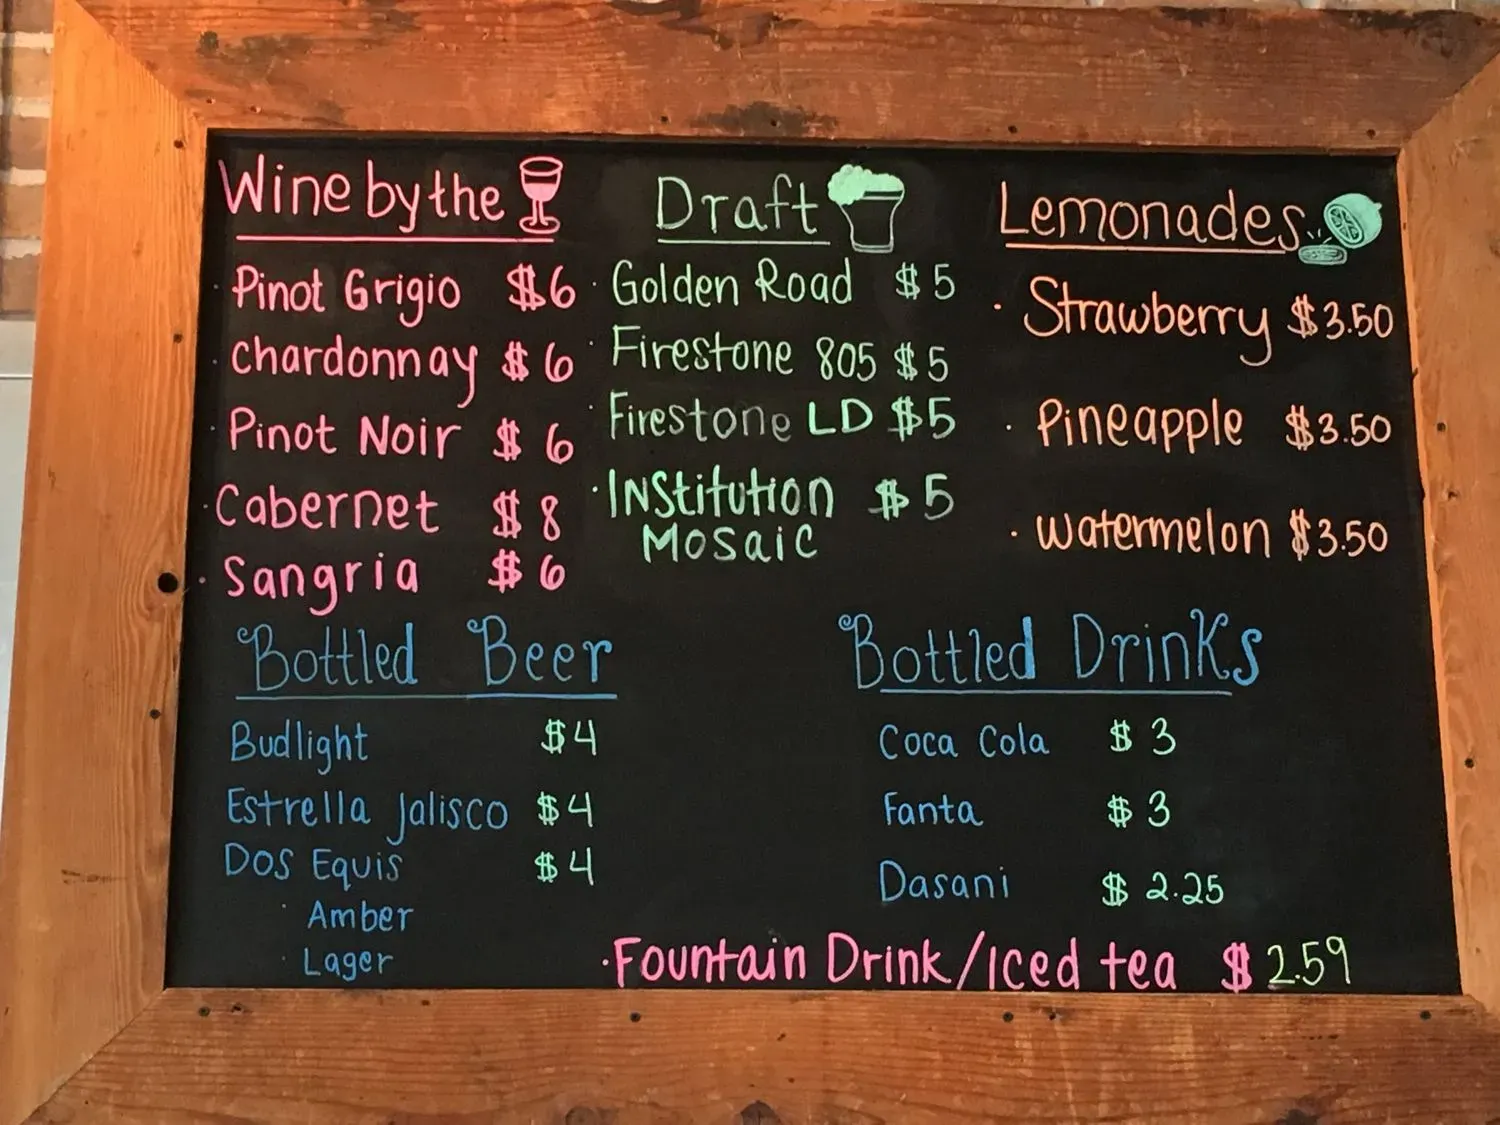 Wine by the
Pinot Grigio $6
Chardonnay $6
Pinot Noir $6
· Cabernet $8
· Sangria $6
Draft
· Golden Road $5
· Firestone 805 $5
· Firestone LD $5
· Institution $5
Mosaic
Lemonades
· Strawberry $3.50
· Pineapple $3.50
· Watermelon $3.50
Bottled Beer
Budlight $4
Estrella Jalisco $4
Dos Equis $4
· Amber
· Lager
Bottled Drinks
Coca Cola $3
Fanta $3
Dasani $2.25
· Fountain Drink/Iced tea $2.59